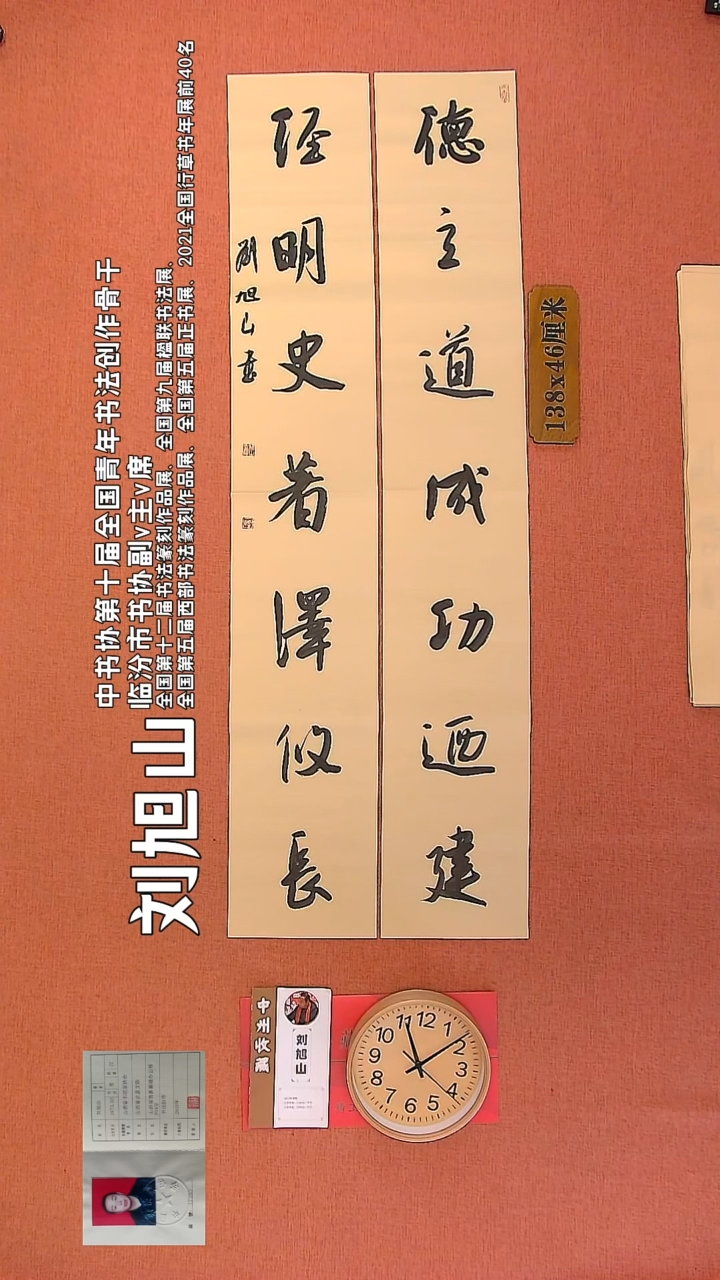 德立道成功迺建
經明史著澤攸長
劉旭山書
138x46厘米
中书协第十届全国青年书法创作骨干
临汾市书协副v主v席
全国第十二届书法篆刻作品展、全国第九届楹联书法展、
全国第五届西部书法篆刻作品展、全国第五届正书展、2021全国行草书年展前40名
刘旭山
刘旭山
12
2
4
5
6
7
8
9
10
11